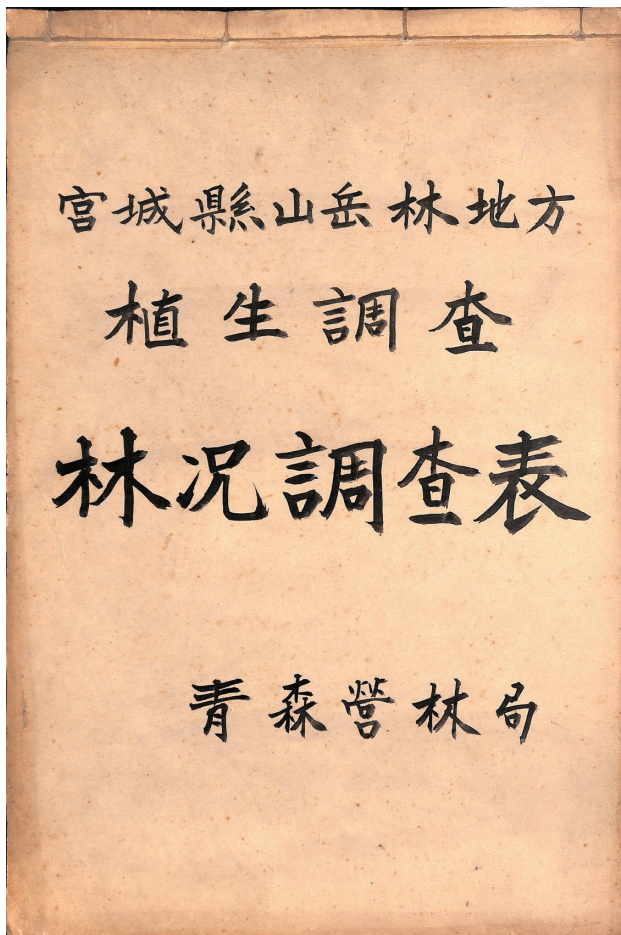 宮城縣山岳林地方
植生調査
林况調査表
青森營林局